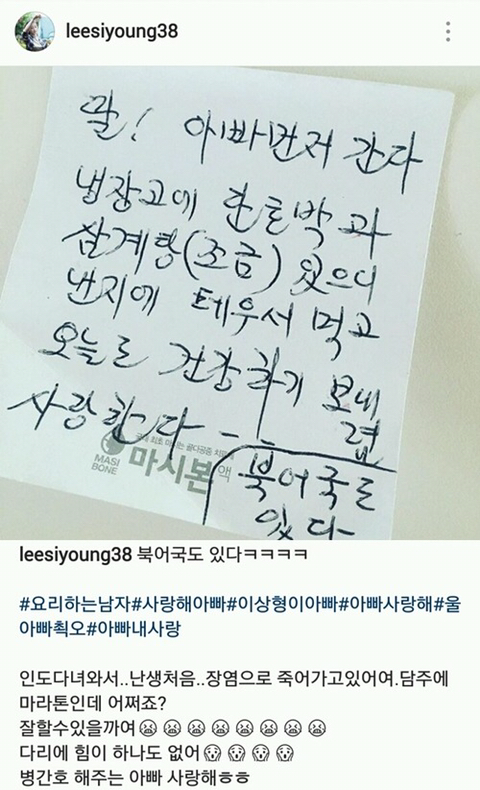 leesiyoung38
딸! 아빠먼저 간다
냉장고에 단호박과
삼계탕(조금) 있으니
낸지에 데우서 먹고
오늘도 건강하게 보내
렴
사랑한다 - -
MASI
BONE
마시본액
북어국도
있다
leesiyoung38 북어국도 있다ㅋㅋㅋㅋ
#요리하는남자#사랑해아빠#이상형이아빠#아빠사랑해#울
아빠쵝오#아빠내사랑
인도다녀와서..난생처음..장염으로 죽어가고있어여.담주에
마라톤인데 어쩌죠?
잘할수있을까여😭😭😭😭😭😭😭😭
다리에 힘이 하나도 없어😱😱😱😱
병간호 해주는 아빠 사랑해ㅎㅎ